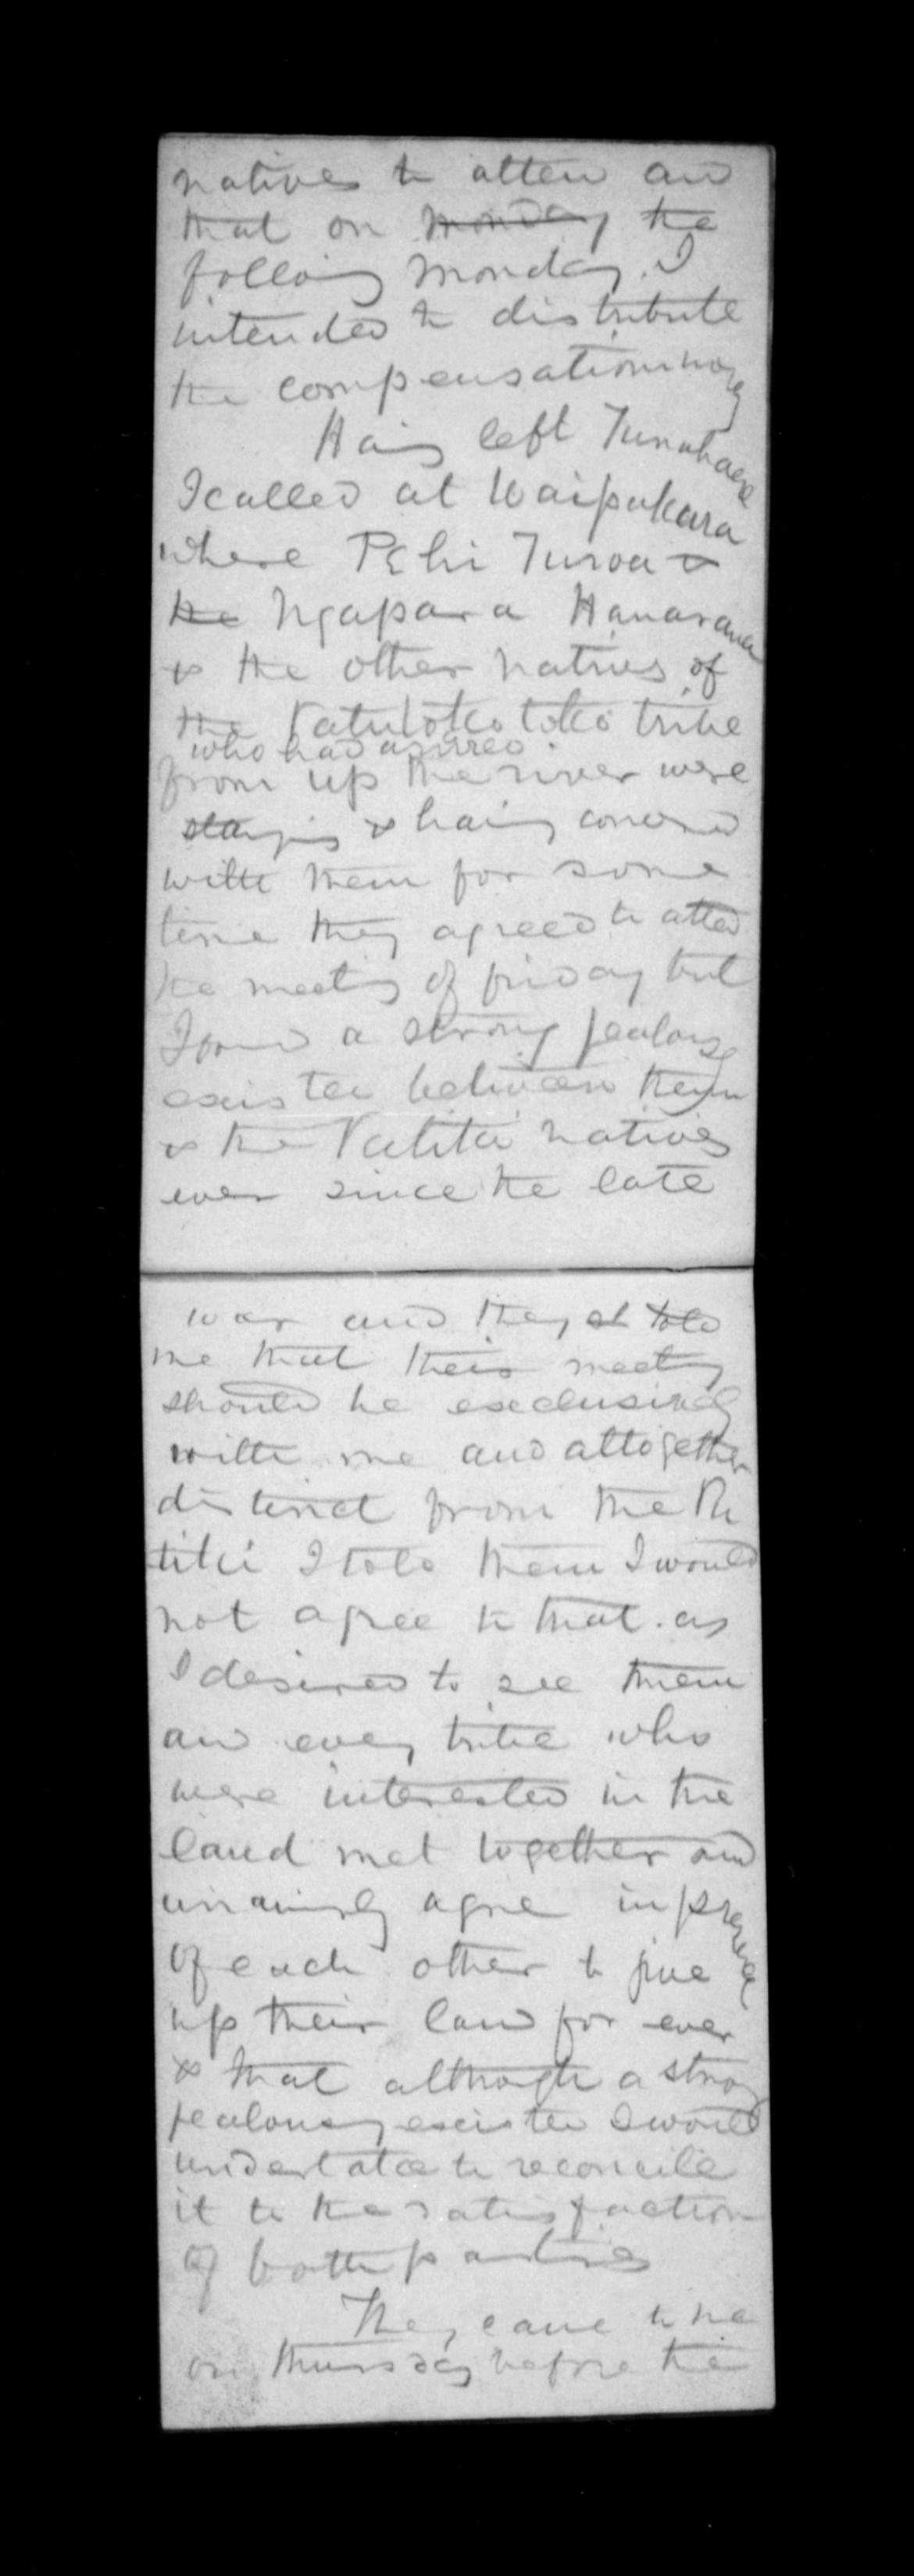 natives to atten and
that on monday the
folloing monday. I
intended to distribute
the compensation money
Haing left Tunuhaere
I called at Waipakura
where Pehi Turoa &
the Ngapara Hanarana
& the other natives of
the Patutokotoko tribe
who had arrived
from up the river were
staying & haing conversed
with them for some
time they agreed to attend
the meeting of friday but
I found a strong jealousy
existed between them
& the Putiki natives
ever since the late
war and they told
me that their meeting
should be exclusively
with me and altogether
distinct from the Pu
tiki I told them I would
not agree to that. as
I desired to see them
and every tribe who
were interested in the
land met together and
unanimously agree in presence
of each other to give
up their land for ever
& that although a strong
jealousy existed I would
undertake to reconcile
it to the satisfaction
of both parties
They came to me
on thursday before the